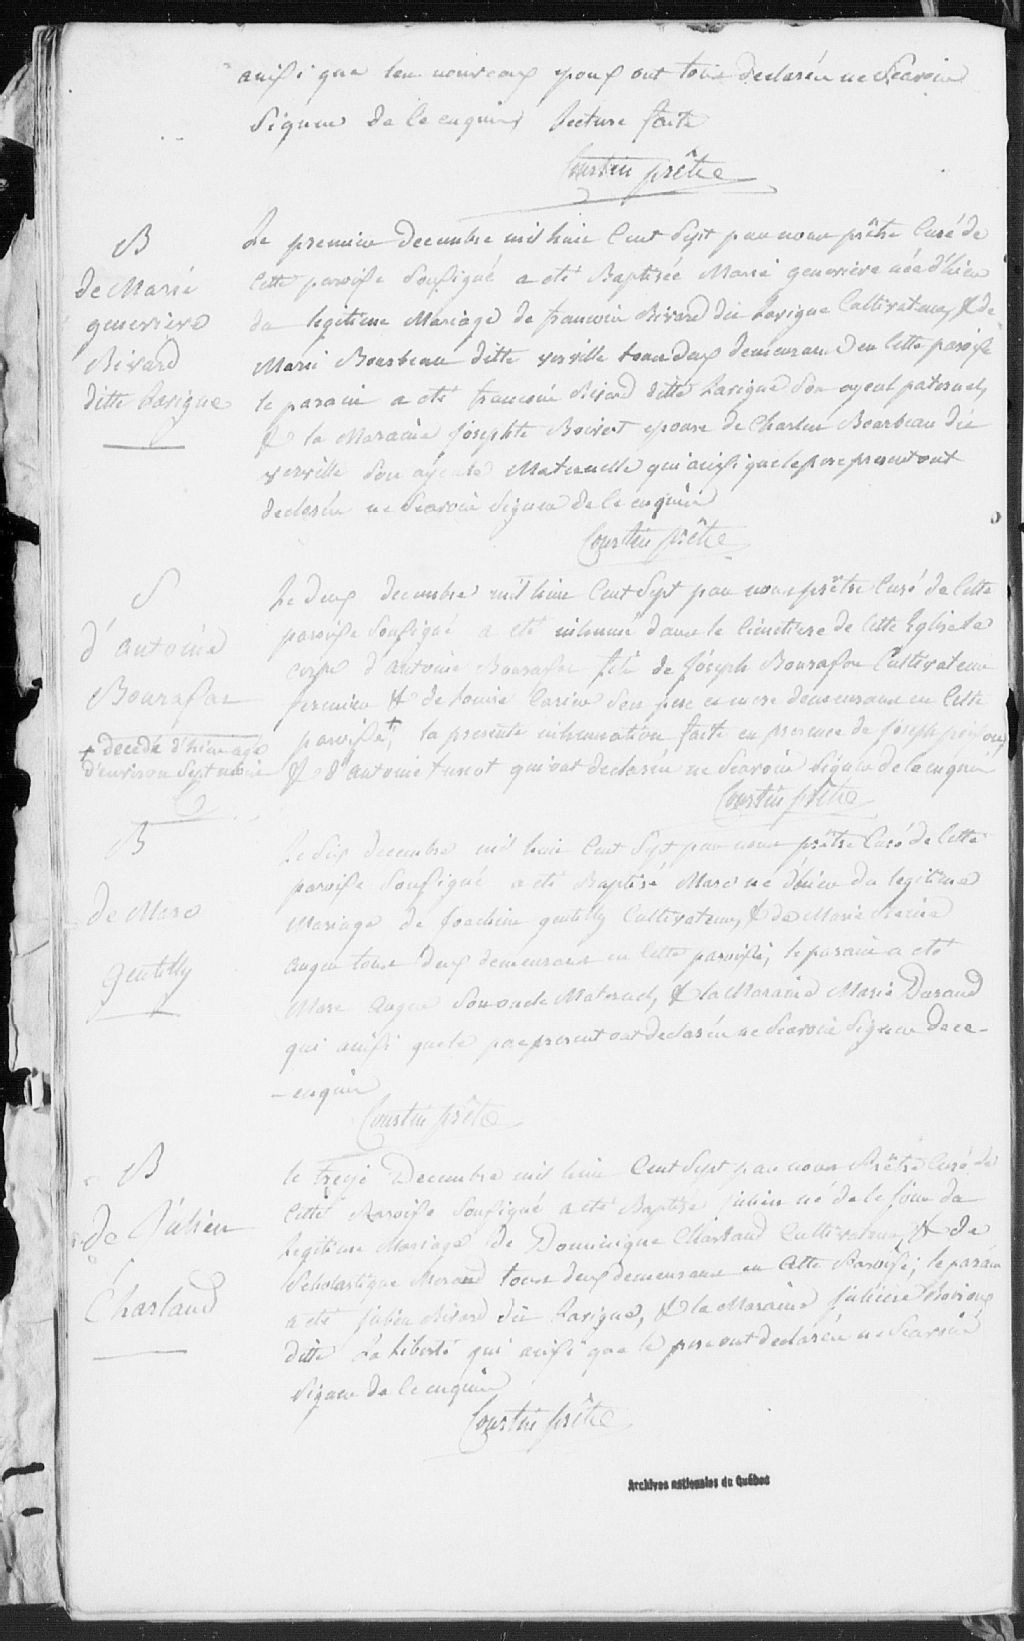 ainsi que les nouveaux epoux ont tous declarés ne Scavoir
Signer de ce enquis, Lecture faite
Courtin prêtre
B
de Marie
genevieve
Rivard
ditte Lavigne
Le premier decembre mil huit Cent Sept par nous prêtre Curé de
Cette paroisse Sousigné a eté Baptisée Marie genevieve née d'hier
du legitime Mariage de francois Rivard dit Lavigne Cultivateur, & de
Marie Bourbeau ditte verville tous deux demeurans en Cette paroisse
le parain a eté francois Rivard ditte Lavigne Son ayeul paternel,
& la Maraine josephte Boivert epouse de Charles Bourbeau dit
verville Son ayeule Maternelle qui ainsi que le pere present ont
declarés ne Scavoir Signer de ce enquis
Courtin prêtre
S
d'antoine
Bourassa
+ decedé d'hier agé
d'environ Sept mois
Le deux decembre mil huit Cent Sept par nous prêtre Curé de Cette
paroisse Sousigné a eté inhumé dans le Cimetiere de Cette Eglise le
corps d'antoine Bourassa fils de Joseph Bourassa Cultivateur
fermier & de Louise Ses pere et mere demeurans en Cette
paroisse +, la presente inhumation faite en presence de joseph
& d'antoine turcot qui ont declarés ne Scavoir Signer de ce enquis
Courtin prêtre
B
de Marc
gentilly
Le Six decembre mil huit Cent Sept par nous prêtre Curé de Cette
paroisse Sousigné a eté Baptisé Marc né d'hier du legitime
Mariage de Joachim gentilly Cultivateur, & de Marie
auger tous deux demeurans en Cette paroisse; le parain a eté
Marc auger Son oncle Maternel, & la Maraine Marie Durand
qui ainsi que le pere present ont declarés ne Scavoir Signer de ce-
-enquis
Courtin prêtre
B
de Julien
Charland
le treize Decembre mil huit Cent Sept par nous Prêtre Curé de
Cette Paroisse Sousigné a eté Baptisé julien né de ce jour du
legitime Mariage de Dominique Charland Cultivateur, & de
Scholastique Morand tous deux demeurans en Cette Paroisse; le parain
a eté julien Rivard dit Lavigne, & la Maraine julienne
ditte La Liberté qui ainsi que le pere ont declarés ne Scavoir
Signer de ce enquis
Courtin prêtre
Archives nationales du Québec